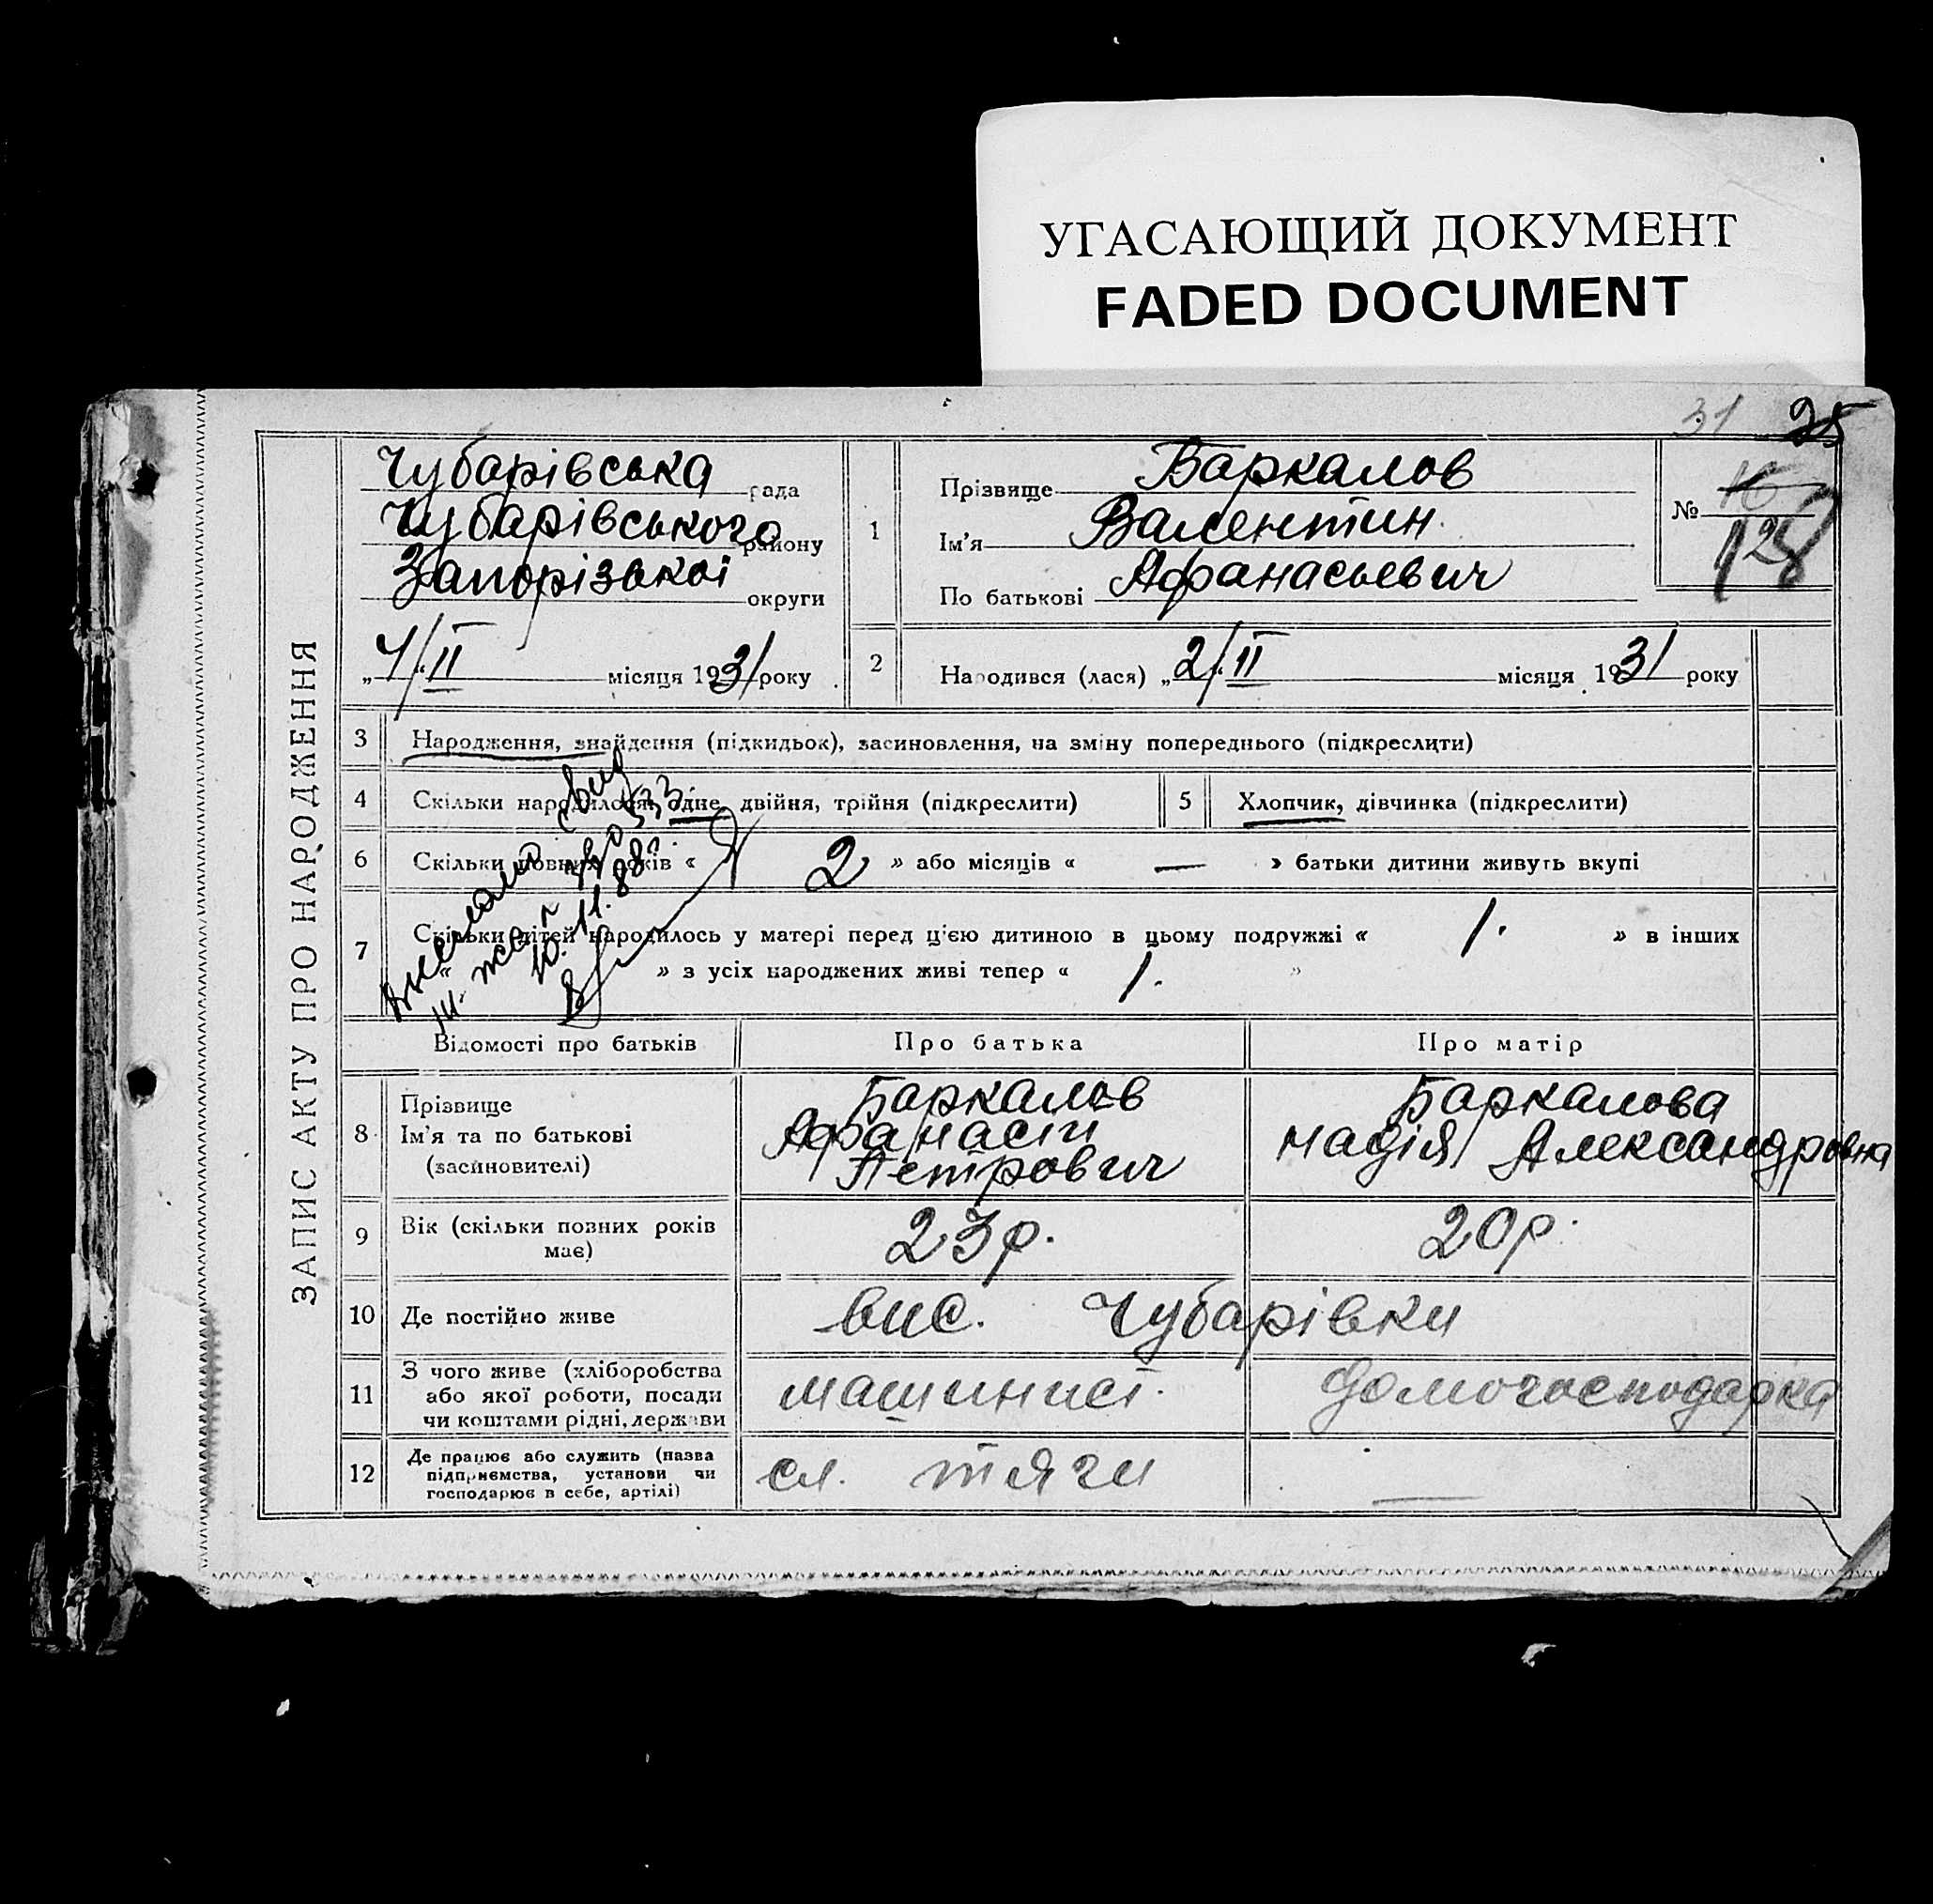 УГАСАЮЩИЙ ДОКУМЕНТ
FADED DOCUMENT
31 25
ЗАПИС АКТУ ПРО НАРОДЖЕННЯ
Чубарівська рада
Чубарівського району
Запорізької округи
„4/“ II місяця 1931 року
1
Прізвище Баркалов
Ім'я Валентин
По батькові Афанасьевич
№ 16
128
2 Народився (лася) „2/“ II місяця 1931 року
3 Народження, знайдення (підкидьок), засиновлення, на зміну попереднього (підкреслити)
4 Скільки народилося: одне, двійня, трійня (підкреслити)
5 Хлопчик, дівчинка (підкреслити)
6 Скільки повних років « 2 » або місяців « — » батьки дитини живуть вкупі
7 Скільки дітей народилось у матері перед ц'єю дитиною в цьому подружжі « 1. » в інших
« » з усіх народжених живі тепер « 1. »
10.11.88
Відомості про батьків Про батька Про матір
8 Прізвище Ім'я та по батькові (засиновителі)
Баркалов
Афанасій
Петрович
Баркалова
Надія Александровна
9 Вік (скільки повних років має) 23 р. 20 р.
10 Де постійно живе вис. Чубарівки
11 З чого живе (хліборобства або якої роботи, посади чи коштами рідні, держави машиніст. домогосподарка
12 Де працює або служить (назва підприємства, установи чи господарює в себе, артілі) сл. тяги —